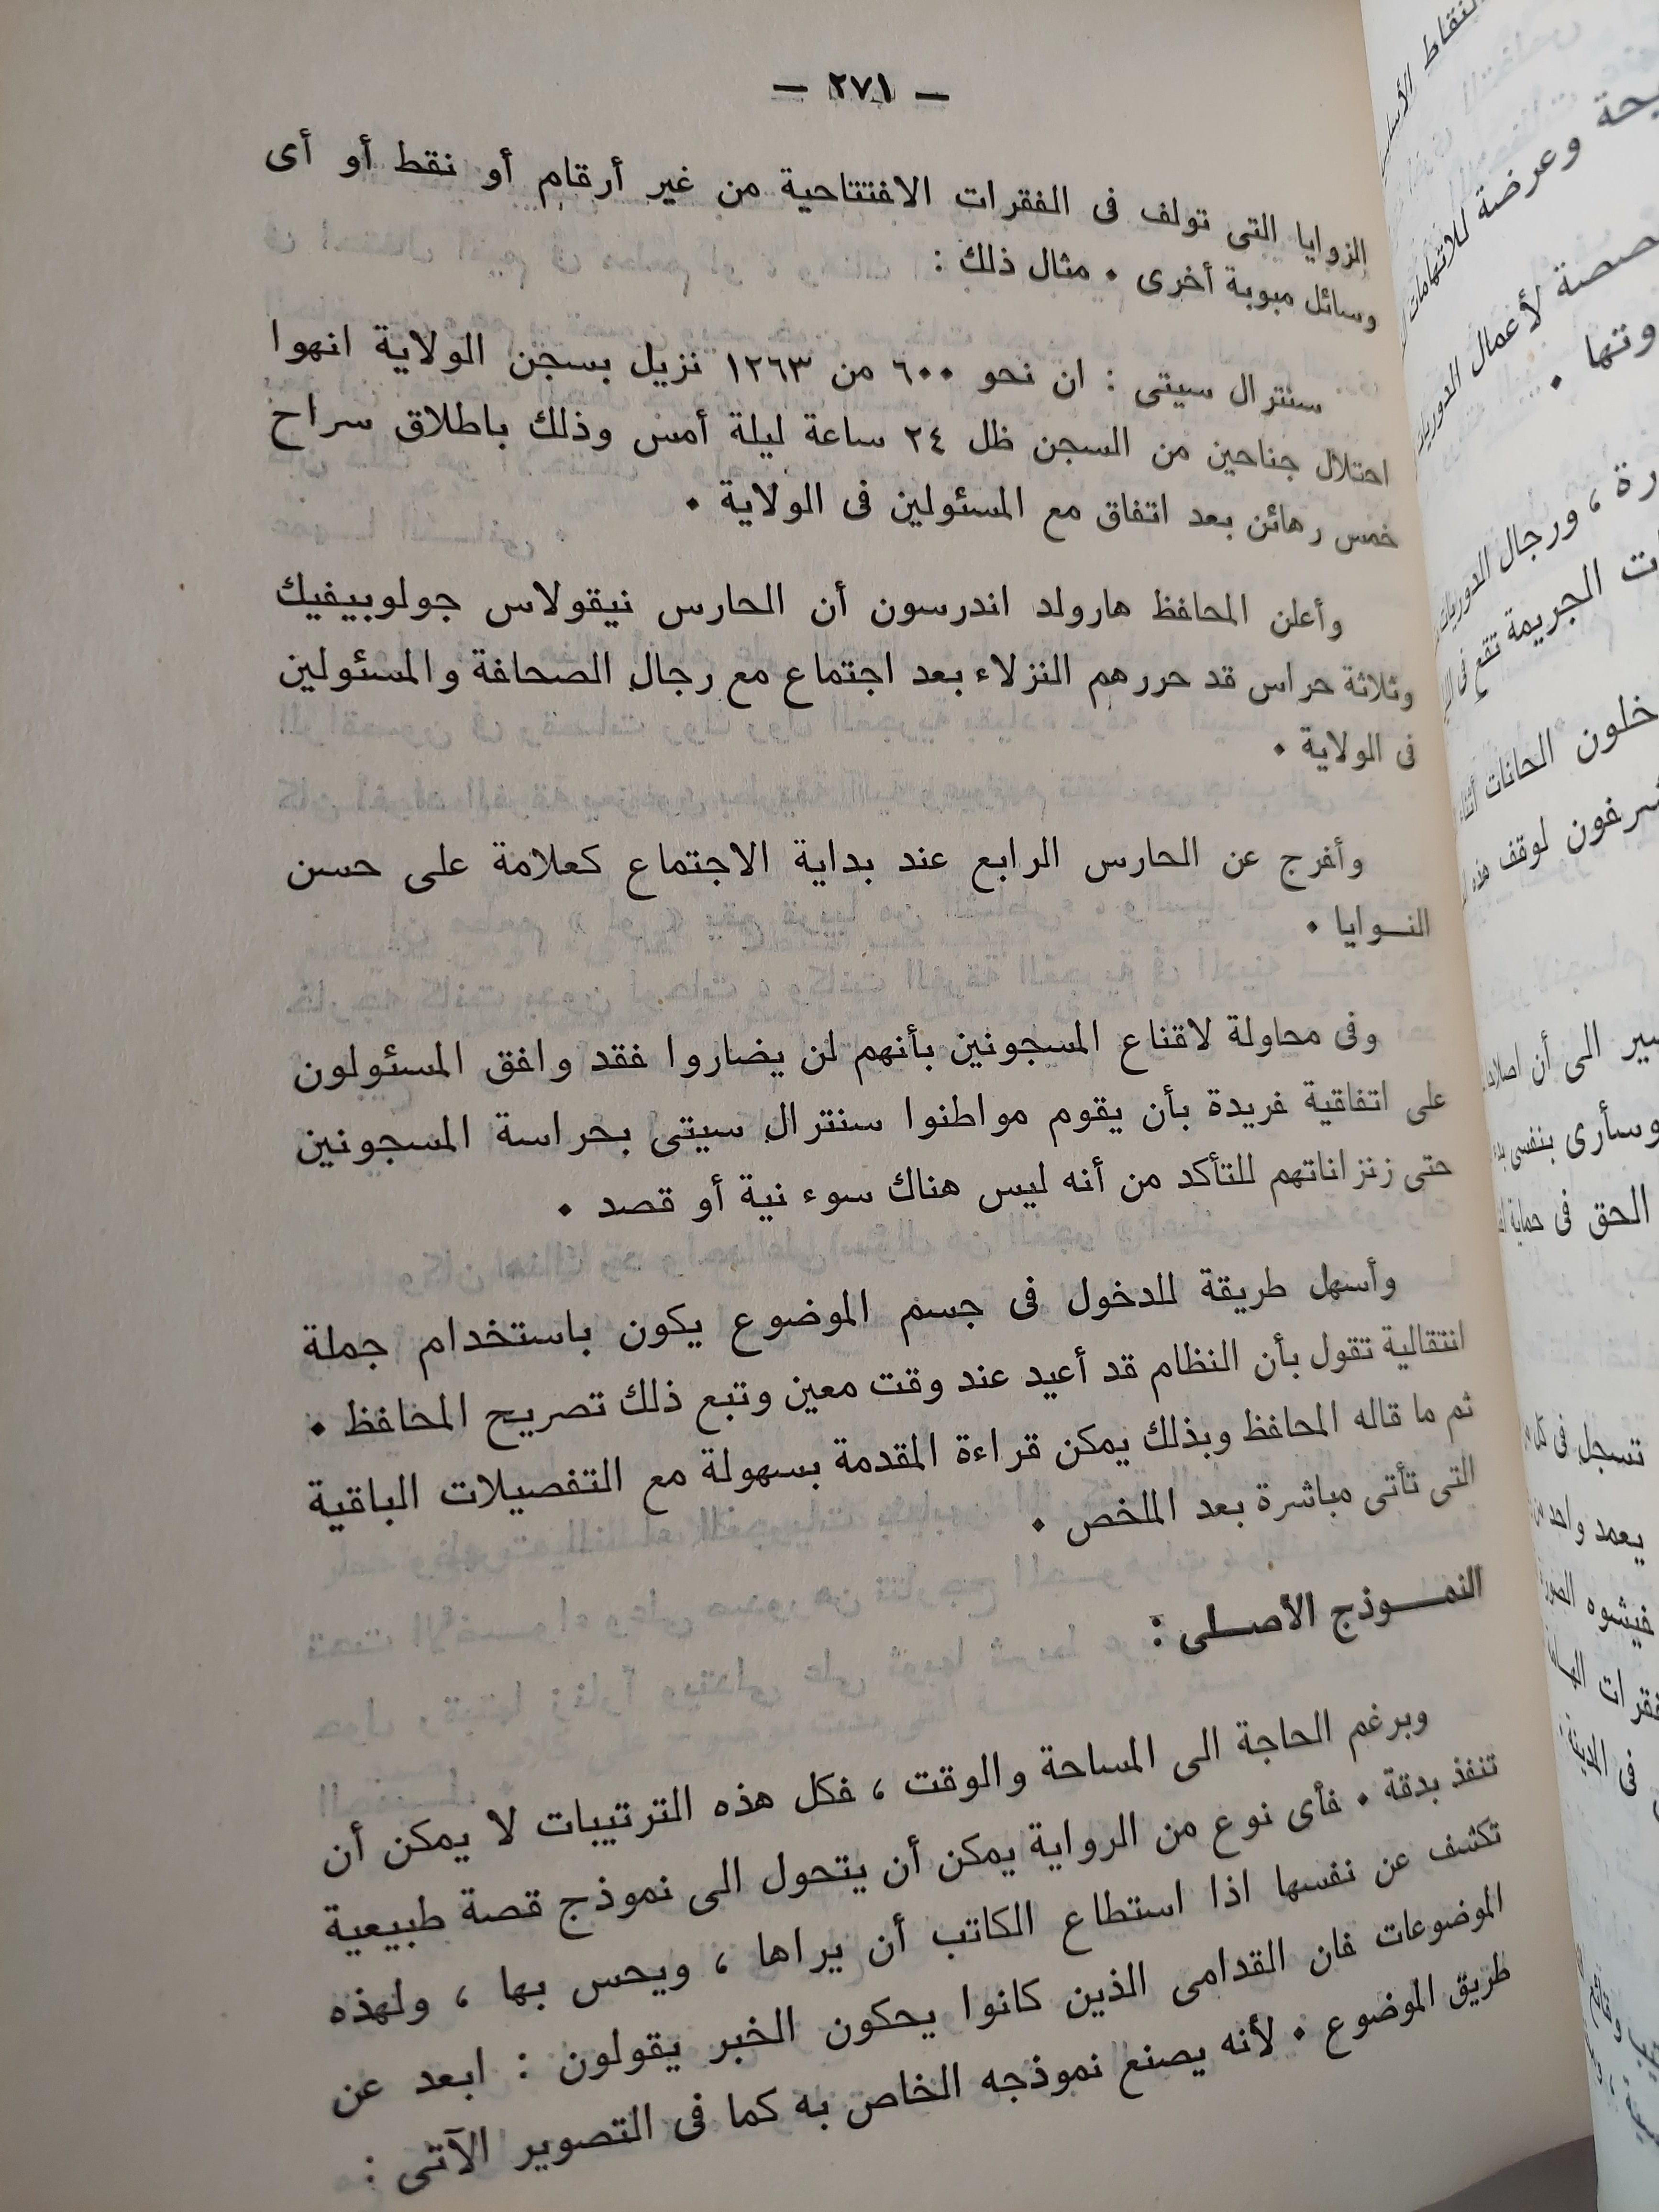 — ٢٧١ —
الزوايا التى تولف فى الفقرات الافتتاحية من غير أرقام أو نقط أو أى
وسائل مبوبة أخرى . مثال ذلك :
سنترال سيتى : ان نحو ٦٠٠ من ١٢٦٣ نزيل بسجن الولاية انهوا
احتلال جناحين من السجن ظل ٢٤ ساعة ليلة أمس وذلك باطلاق سراح
خمس رهائن بعد اتفاق مع المسئولين فى الولاية .
وأعلن المحافظ هارولد اندرسون أن الحارس نيقولاس جولوبيفيك
وثلاثة حراس قد حررهم النزلاء بعد اجتماع مع رجال الصحافة والمسئولين
فى الولاية .
وأفرج عن الحارس الرابع عند بداية الاجتماع كعلامة على حسن
النـوايا .
وفى محاولة لاقناع المسجونين بأنهم لن يضاروا فقد وافق المسئولون
على اتفاقية فريدة بأن يقوم مواطنوا سنترال سيتى بحراسة المسجونين
حتى زنزاناتهم للتأكد من أنه ليس هناك سوء نية أو قصد .
وأسهل طريقة للدخول فى جسم الموضوع يكون باستخدام جملة
انتقالية تقول بأن النظام قد أعيد عند وقت معين وتبع ذلك تصريح المحافظ .
ثم ما قاله المحافظ وبذلك يمكن قراءة المقدمة بسهولة مع التفصيلات الباقية
التى تأتى مباشرة بعد الملخص .
النمـــوذج الأصـلى :
وبرغم الحاجة الى المساحة والوقت ، فكل هذه الترتيبات لا يمكن أن
تنفذ بدقة . فأى نوع من الرواية يمكن أن يتحول الى نموذج قصة طبيعية
تكشف عن نفسها اذا استطاع الكاتب أن يراها ، ويحس بها ، ولهذه
الموضوعات فان القدامى الذين كانوا يحكون الخبر يقولون : ابعد عن
طريق الموضوع . لأنه يصنع نموذجه الخاص به كما فى التصوير الآتى :
وعرضة للاتهامات
لأعمال الدوريات
وتها .
ورجال الدوريات
الجريمة تقع فى
الحانات أثناء
لوقف هذه
الى أن
وسأرى بنفسى
الحق فى حماية
تسجل فى
يعمد واحد من
فيشوه
فى المدينة